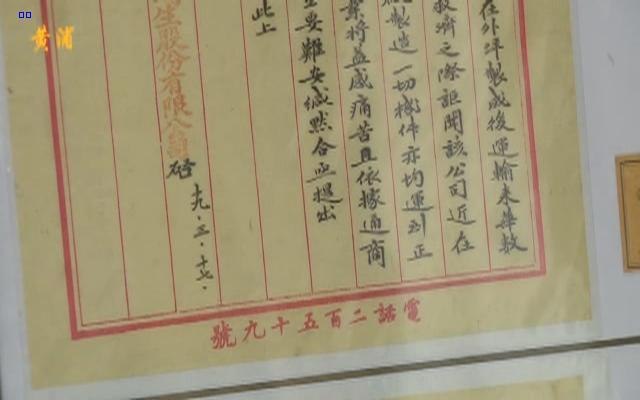 黄浦
在外洋製成後運輸來華數
救濟之際詎聞該公司近在
製造一切機件亦均運到正
業將益感痛苦且依據通商
要難安緘默合亟提出
此上
生股份有限公司 啓
十九·三·十七·
電話二百五十九號